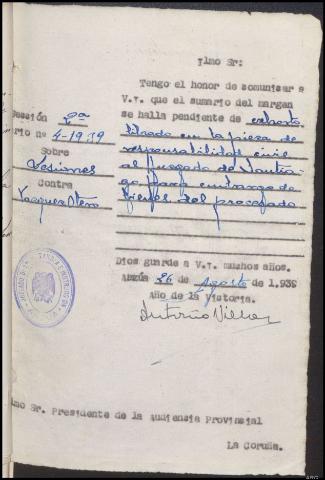 Ilmo Sr:
Tengo el honor de comunicar a
V.I. que el sumario del margen
se halla pendiente de exhorto
librado en la pieza de
responsabilidad civil
al Juzgado de Santia-
go para embargo de
bienes del procesado
Dios guarde a V.I. muchos años.
Arzúa 26 de Agosto de 1.939
Año de la Victoria.
Antonio
ección 2ª
rio nº 4-1939
Sobre
Lesiones
Contra
Vazquez Otero
lmo Sr. Presidente de la Audiencia Provincial
La Coruña.